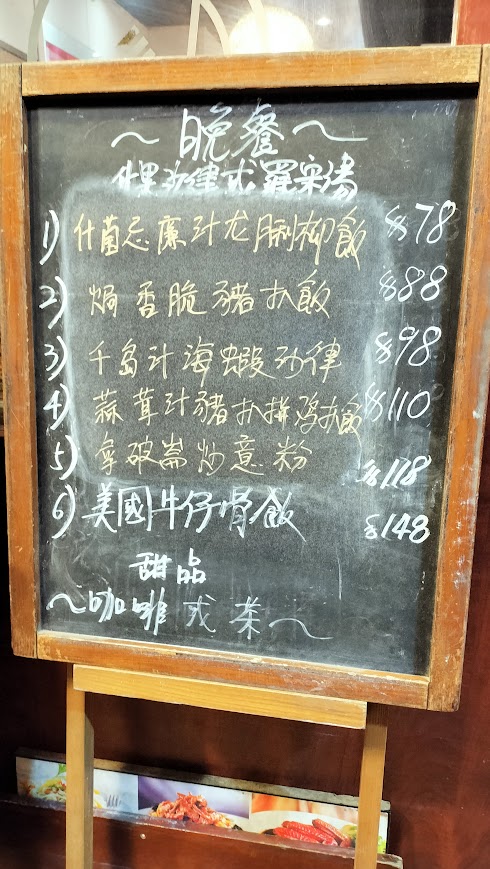 ～晚餐～
什果沙律或羅宋湯
1) 什菌忌廉汁龙脷柳飯 $78
2) 焗香脆豬扒飯 $88
3) 千岛汁海蝦沙律 $98
4) 蒜茸汁豬扒拼鸡扒飯 $110
5) 拿破崙炒意粉 $118
6) 美國牛仔骨飯 $148
甜品
～咖啡或茶～